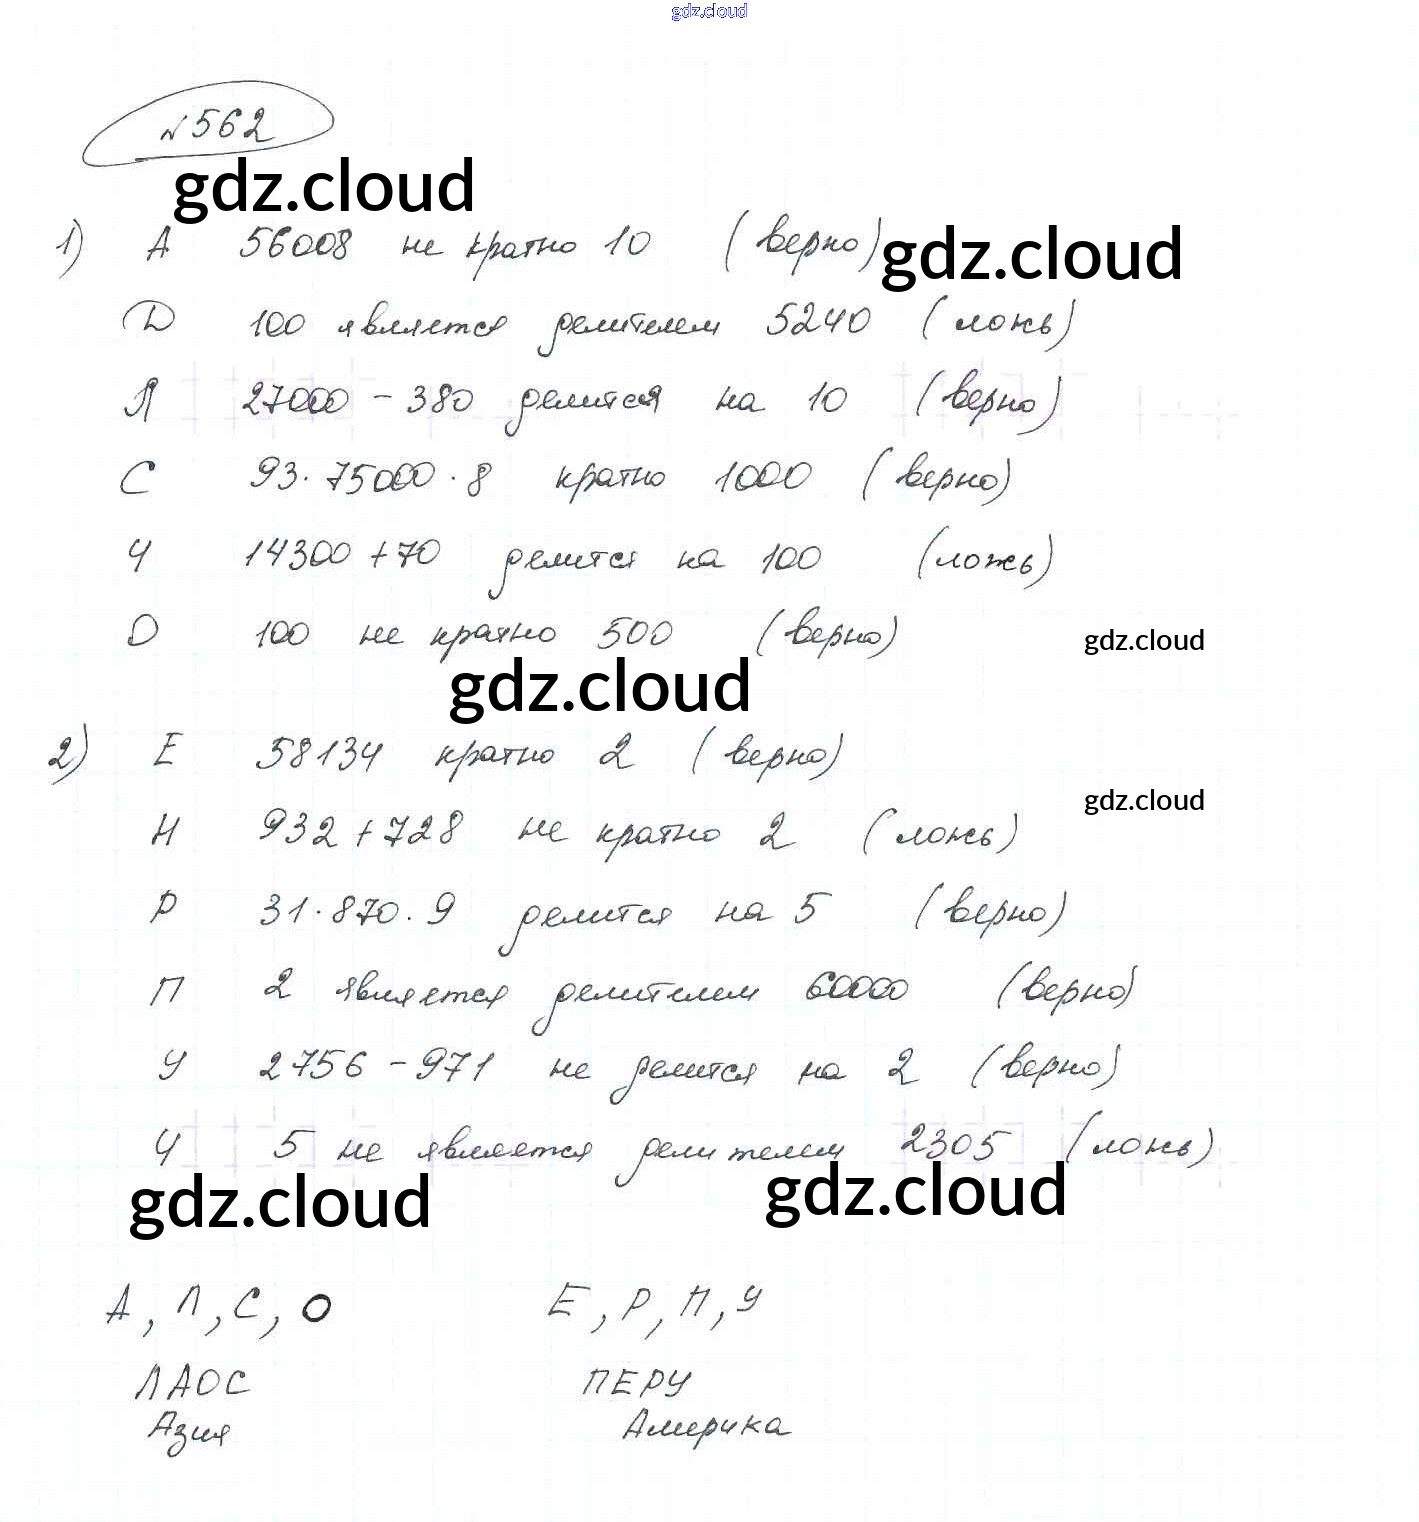 gdz.cloud
№562
gdz.cloud
1) А 56008 не кратно 10 (верно)
gdz.cloud
D 100 является делителем 5240 (ложь)
Л 27000 - 380 делится на 10 (верно)
С 93 · 75000 · 8 кратно 1000 (верно)
Ч 14300 + 70 делится на 100 (ложь)
О 100 не кратно 500 (верно)
gdz.cloud
gdz.cloud
2) Е 58134 кратно 2 (верно)
gdz.cloud
Н 932 + 728 не кратно 2 (ложь)
Р 31 · 870 · 9 делится на 5 (верно)
П 2 является делителем 60000 (верно)
У 2756 - 971 не делится на 2 (верно)
Ч 5 не является делителем 2305 (ложь)
gdz.cloud
gdz.cloud
А, Л, С, О Е, Р, П, У
ЛАОС ПЕРУ
Азия Америка